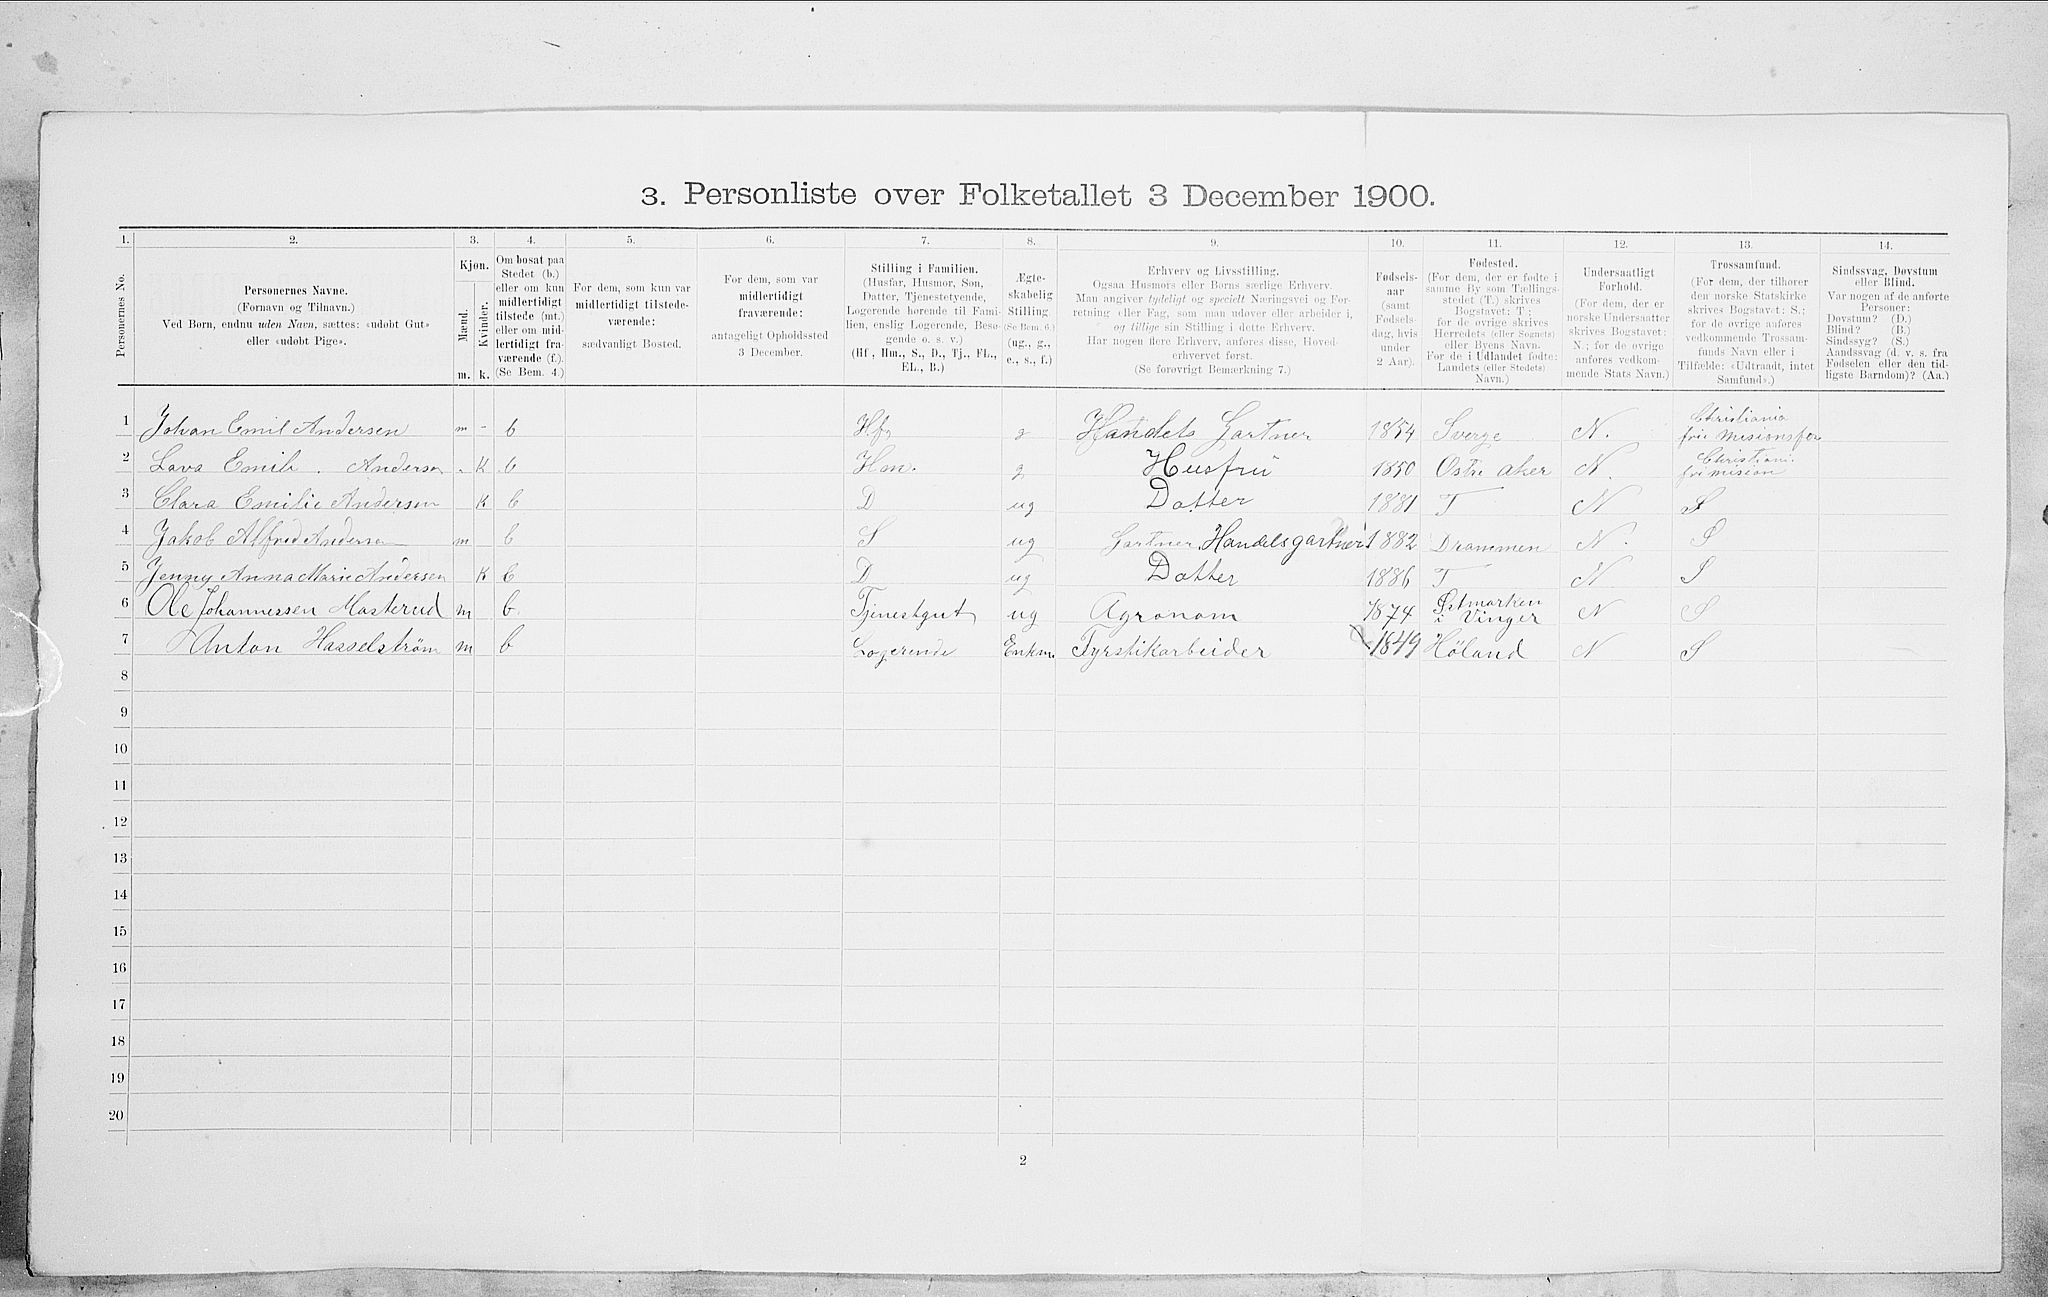 3. Personliste over Folketallet 3 December 1900.
1. 2. 3. 4. 5. 6. 7. 8. 9. 10. 11. 12. 13. 14.
Personernes No.
Personernes Navne.
(Fornavn og Tilnavn.)
Ved Børn, endnu uden Navn, sættes: «udøbt Gut»
eller «udøbt Pige».
Kjøn.
Mænd.
Kvinder.
m. k.
Om bosat paa
Stedet (b.)
eller om kun
midlertidigt
tilstede (mt.)
eller om mid-
lertidigt fra-
værende (f.)
(Se Bem. 4.)
For dem, som kun var
midlertidigt tilstede-
værende:
sædvanligt Bosted.
For dem, som var
midlertidigt
fraværende:
antageligt Opholdssted
3 December.
Stilling i Familien.
(Husfar, Husmor, Søn,
Datter, Tjenestetyende,
Logerende hørende til Fami-
lien, enslig Logerende, Besø-
gende o. s. v.)
(Hf., Hm., S., D., Tj., FL.,
EL., B.)
Ægte-
skabelig
Stilling.
(Se Bem. 6.)
(ug., g.,
e., s., f.)
Erhverv og Livsstilling.
Ogsaa Husmors eller Børns særlige Erhverv.
Man angiver tydeligt og specielt Næringsvei og For-
retning eller Fag, som man udøver eller arbeider i,
og tillige sin Stilling i dette Erhverv.
Har nogen flere Erhverv, anføres disse, Hoved-
erhvervet først.
(Se forøvrigt Bemærkning 7.)
Fødsels-
aar
(samt
Fødsels-
dag, hvis
under
2 Aar).
Fødested.
(For dem, der er fødte i
samme By som Tællings-
stedet (T.) skrives
Bogstavet: T;
for de øvrige skrives
Herredets (eller Sognets)
eller Byens Navn.
For de i Udlandet fødte:
Landets (eller Stedets)
Navn.)
Undersaatligt
Forhold.
(For dem, der er
norske Undersaatter
skrives Bogstavet:
N.; for de øvrige
anføres vedkom-
mende Stats Navn.)
Trossamfund.
(For dem, der tilhører
den norske Statskirke
skrives Bogstavet: S.;
for de øvrige anføres
vedkommende Trossam-
funds Navn eller i
Tilfælde: «Udtraadt, intet
Samfund».)
Sindssvag, Døvstum
eller Blind.
Var nogen af de anførte
Personer:
Døvstum? (D.)
Blind? (B.)
Sindssyg? (S.)
Aandssvag (d. v. s. fra
Fødselen eller den tid-
ligste Barndom)? (Aa.)
1 Johan Emil Andersen m - b Hf g Handels Gartner 1854 Sverge N. Christiania
frie Misionsfor
2 Lava Emili. Andersen - K b Hm. g Husfru 1850 Østre aker N. Christiani.
fri mision
3 Clara Emilie Andersen K b D ug Datter 1881 T N S
4 Jakob Alfred Andersen m b S ug Gartner Handelsgartneri 1882 Drammen N. S
5 Jenny Anna Marie Andersen K b D ug Datter 1886 T N S
6 Ole Johannessen Masterud m b. Tjenestgut ug Agronom 1874 Østmarken
i Vinger N S
7 Anton Hasselstrøm m b Logerende Enkm. Fyrstikarbeider 1849 Høland N S
8
9
10
11
12
13
14
15
16
17
18
19
20
2